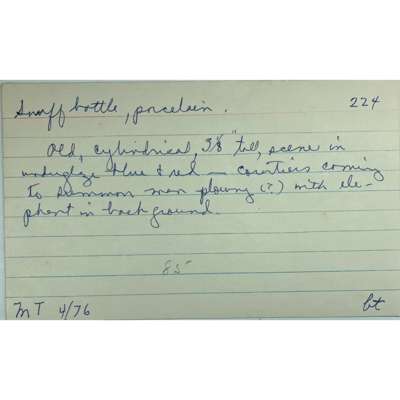 Snuff bottle, porcelain. 224
Old, cylindrical, 3⅛" tall, scene in
underglaze blue & red — courtiers coming
to summon man plowing (?) with ele-
phant in background.
85
MT 4/76 bt